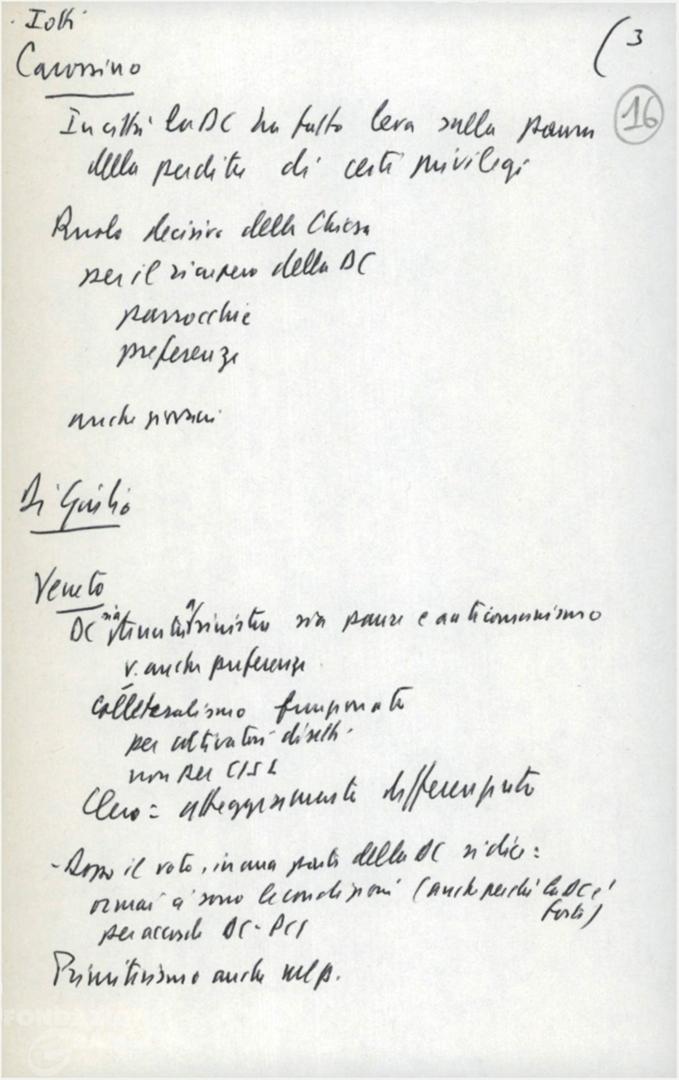 · Iotti
(3
Carossino
16
In città la DC ha fatto leva sulla paura
della perdita di certi privilegi
Ruolo decisivo della Chiesa
per il recupero della DC
parrocchie
preferenze
anche giovani
Di Giulio
Veneto
DC sia a sinistra sia paure e anticomunismo
v. anche preferenze
collateralismo funzionato
per coltivatori diretti
non per CISL
Clero = atteggiamento differenziato
- Dopo il voto, in una parte della DC si dice:
ormai ci sono le condizioni (anche perché la DC è
forte)
per accordo DC-PCI
Primitivismo anche
FONDAZIONE